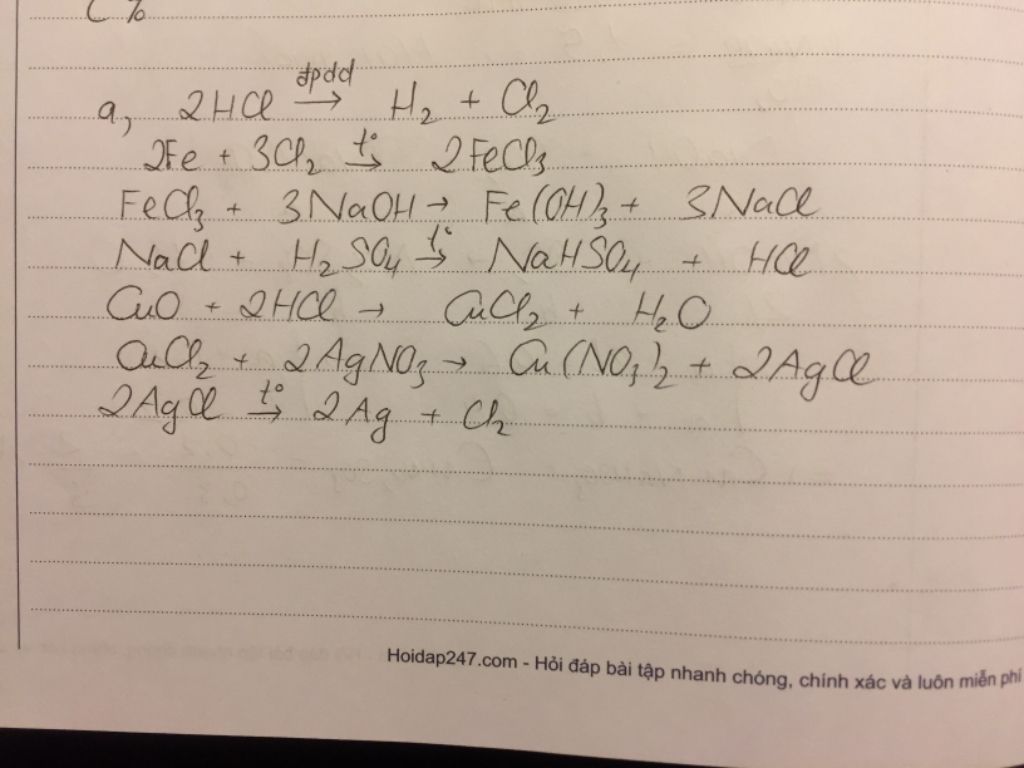 C%
a, 2HCl →(đpdd) H₂ + Cl₂
2Fe + 3Cl₂ →(t°) 2FeCl₃
FeCl₃ + 3NaOH → Fe(OH)₃ + 3NaCl
NaCl + H₂SO₄ →(t°) NaHSO₄ + HCl
CuO + 2HCl → CuCl₂ + H₂O
CuCl₂ + 2AgNO₃ → Cu(NO₃)₂ + 2AgCl
2AgCl →(t°) 2Ag + Cl₂
Hoidap247.com - Hỏi đáp bài tập nhanh chóng, chính xác và luôn miễn phí